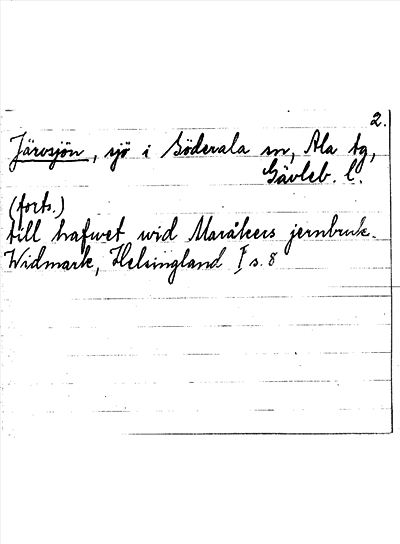 2.
Järvsjön, sjö i Söderala sn, Ala tg,
Gävleb. l.
(forts.)
till hafwet wid Maråkers jernbruk.
Widmark, Helsingland I s. 8